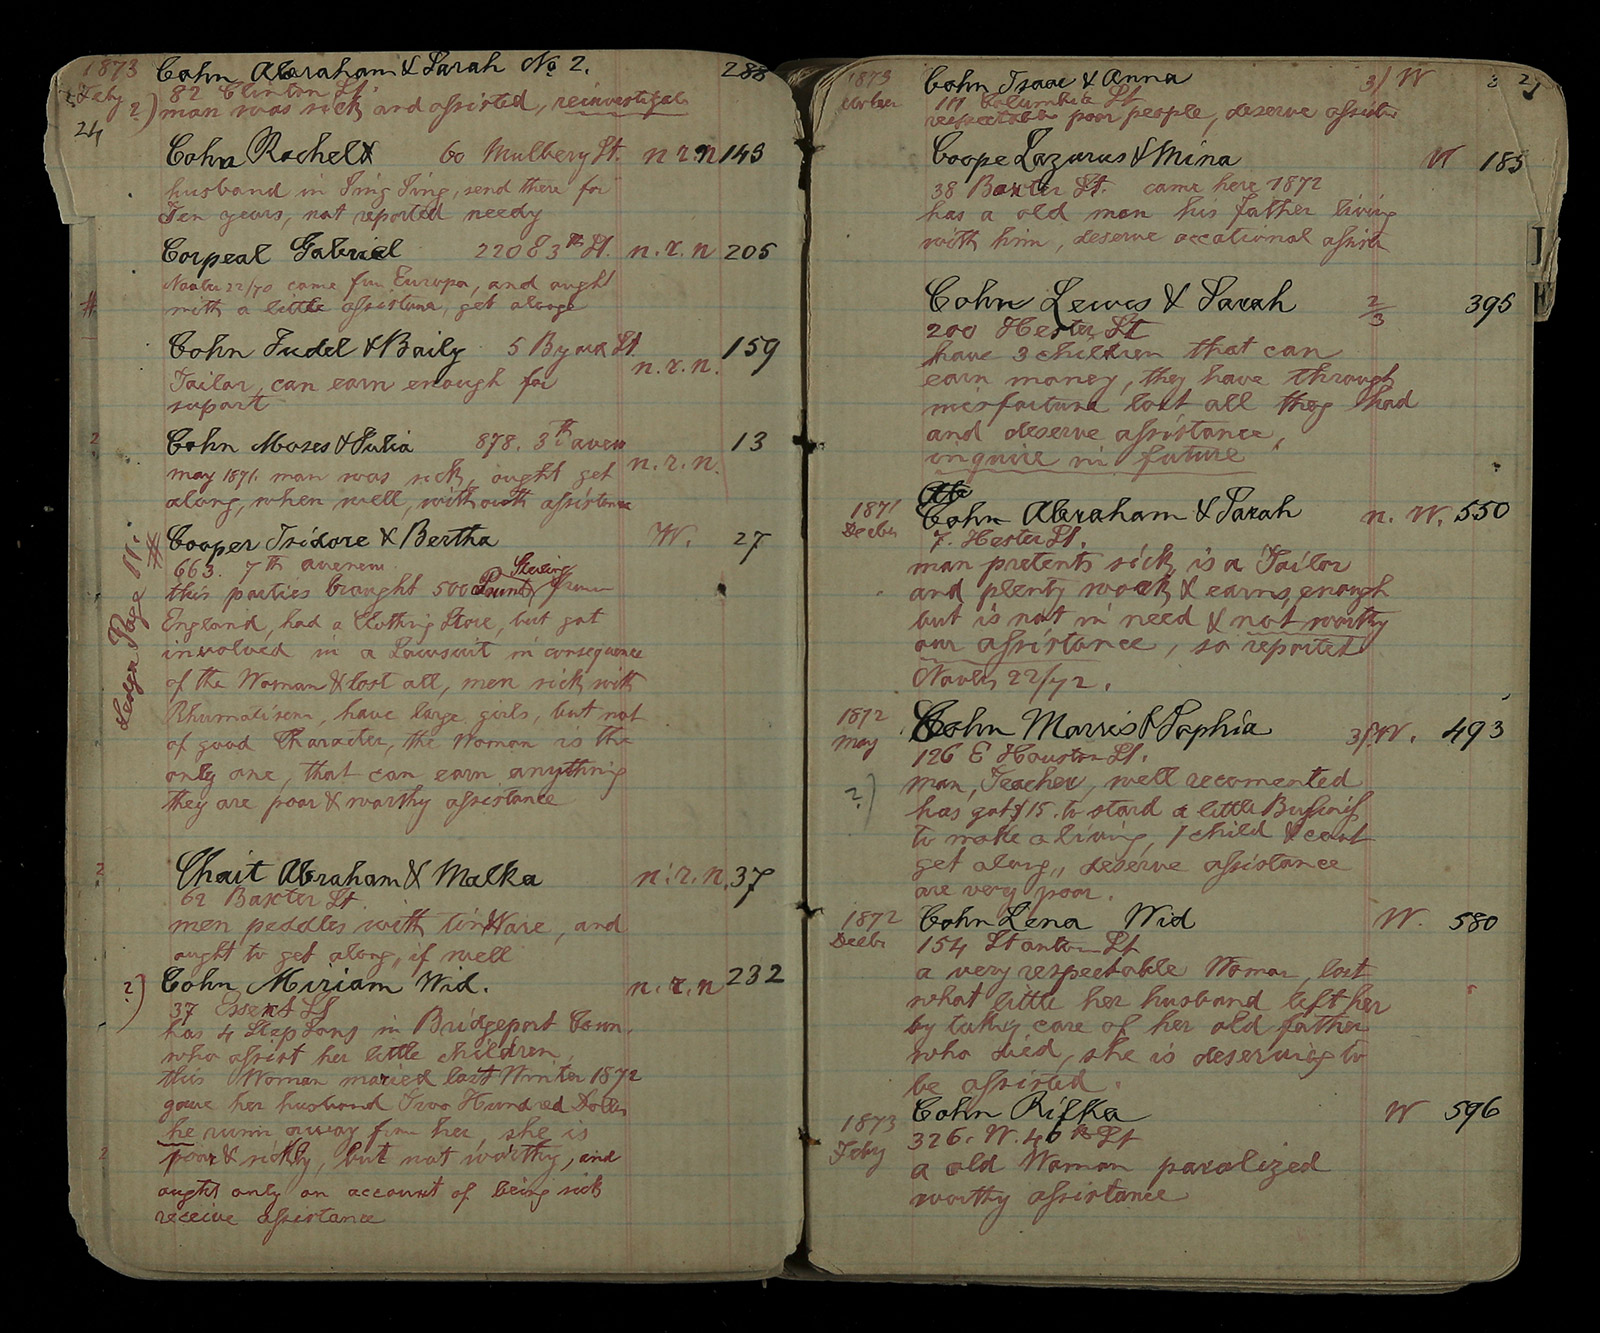 1873 Cohn Abraham & Sarah No 2. 288
Feby 82 Clinton St
24 2) man was sick and assisted, reinvestigate
Cohn Rachel & 60 Mulbery St. n r. n 143
husband in Sing Sing, send there for
Ten years, not reported needy
Corpeal Gabriel 220 E 3th St. n. r. n 205
22/70 came from Europa, and ought
# with a little assistance, get alonge
Cohn Judel & Baily 5 Byard St. 159
n. r. n.
Tailor, can earn enough for
suport
Cohn Moses & Julia 878. 3th aven 13
n. r. n.
may 1871. man was sick, ought get
along, when well, without assistance
# Cooper Isidore & Bertha W. 27
663. 7th avenew
Sterling
this parties brought 500 Pounds from
England, had a Clothing Store, but got
involved in a Lawsuit in consequence
of the Woman & lost all, men sick with
Rhumatisem, have large girls, but not
of good Character, the Woman is the
only one, that can earn anything
they are poor & worthy assistance
Ledger Page W.
Chait Abraham & Malka n. r. n. 37
62 Baxter St
men peddles with tin Ware, and
ought to get along, if well
2) Cohn Miriam Wid. n. r. n 232
37 Essex St
has 4 Step Sons in Bridgeport Conn.
who assist her little children,
this Woman maried last Winter 1872
gave her husband Two Hundred Dollers
he runn away from her, she is
poor & sickly, but not worthy, and
ought only on account of being sick
receive assistance
1873 Cohn Isaac & Anna 3/ W 3 2
117 Columbia St
respectable poor people, deserve assist
Coope Lazurus & Mina W 185
38 Baxter St. came here 1872
has a old man his father living
with him, deserve accational assist
Cohn Lewis & Sarah 2/3 395
200 Hester St
have 3 children that can
earn money, they have through
misfortune lost all they had
and deserve assistance,
inquire in future
1871 Cohn Abraham & Sarah n. W. 550
Decbr 7. Hester St.
man pretents sick, is a Tailor
and plenty work & earns, enough
but is not in need & not worthy
our assistance, so reported
Novbr 22/72.
1872 Cohn Morris & Sophia 3/ W. 493
may 126 E Houston St.
man, Teacher, well recomented
2) has got $15. to stard a little Bussness
to make a living, 1 child & cant
get along, deserve assistance
are very poor.
1872 Cohn Lena Wid W. 580
Decbr 154 Stanton St
a very respectable Woman, lost
what little her husband left her
by taking care of her old father
who died, she is deserving to
be assisted.
1873 Cohn Rifka W 596
Feby 326. W. 46th St
a old Woman paralized
worthy assistance